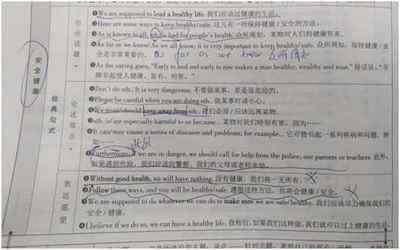 安全健康
❶We are supposed to lead a healthy life. 我们应该过健康的生活。
❷Here are some ways to keep healthy/safe. 这儿有一些保持健康/安全的方法。
❸As is known to all, is bad for people's health. 众所周知，某物对人们的健康有害。
❹As far as we know/As we all know, it is very important to keep healthy/safe. 众所周知，保持健康/安全是非常重要的。
as far as we know
❺As the saying goes, "Early to bed and early to rise makes a man healthy, wealthy and wise." 俗话说，"早睡早起使人健康、富有、明智。"
经典句式
❶Don't do sth. It is very dangerous. 不要做某事，某事非常危险。
❷Please be careful when you are doing sth. 做某事时请小心。
❸We must/should keep away from sth. 我们必须/应该远离某物。
❹sth. is/are especially harmful to us because... 某物对我们特别有害，因为……
❺It can/may cause a series of diseases and problems, for example... 它可能引起一系列疾病和问题，例如……
❻Furthermore, if we are in danger, we should call for help from the police, our parents or teachers. 此外，如果遇到危险，我们应该向警察、我们的父母或者老师求助。
❶Without good health, we will have nothing. 没有健康，我们将一无所有。
❷Follow these ways, and you will be healthy/safe. 遵循这些方法，你就会健康/安全。
❸We are supposed to do whatever we can do to make sure we are safe/healthy. 我们应该尽力确保我们的安全/健康。
❹I believe if we do so, we can have a healthy life. 我相信，如果我们这样做，我们就可以过上健康的生活